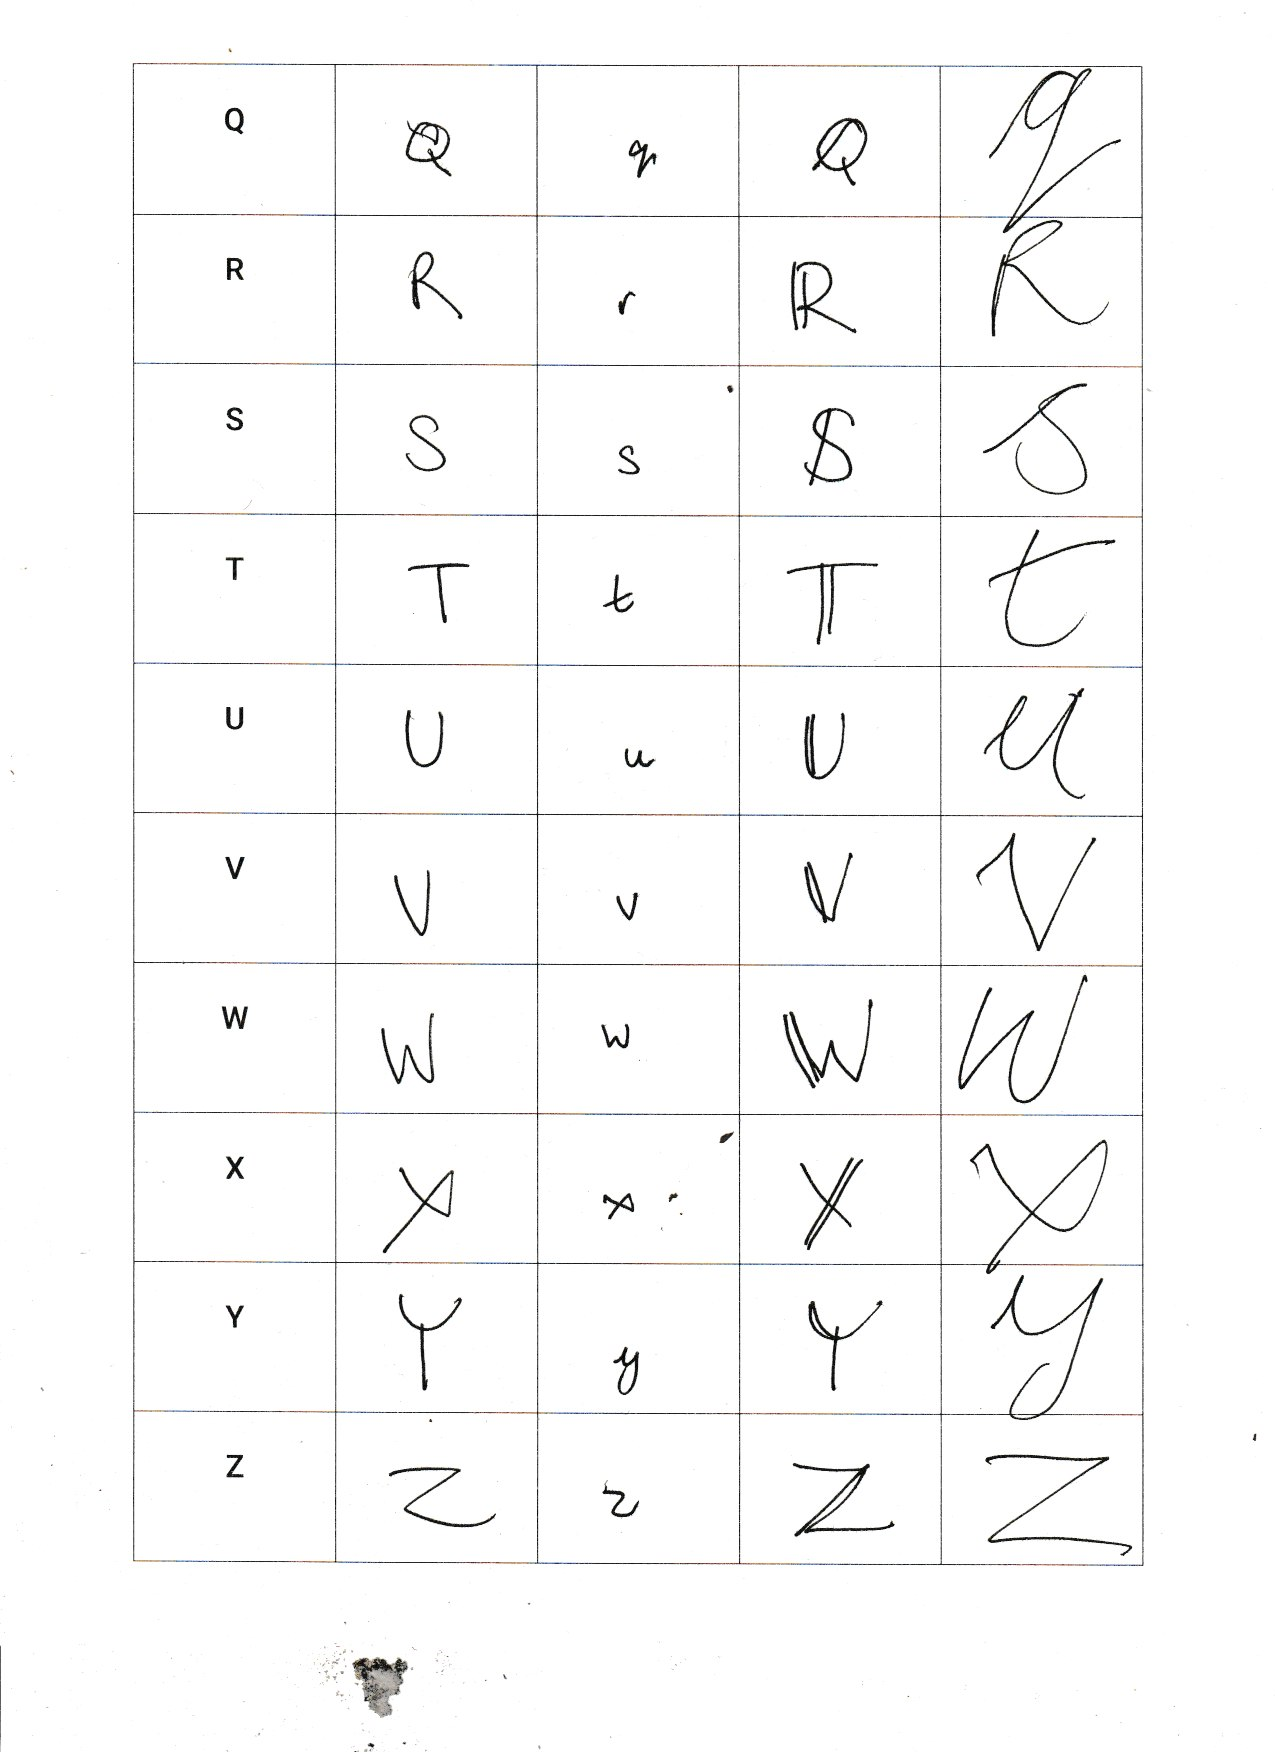 Q Q q Q q
R R r R R
S S s S S
T T t T t
U U u U U
V V v V V
W W w W W
X X x X X
Y Y y Y Y
Z Z z Z Z